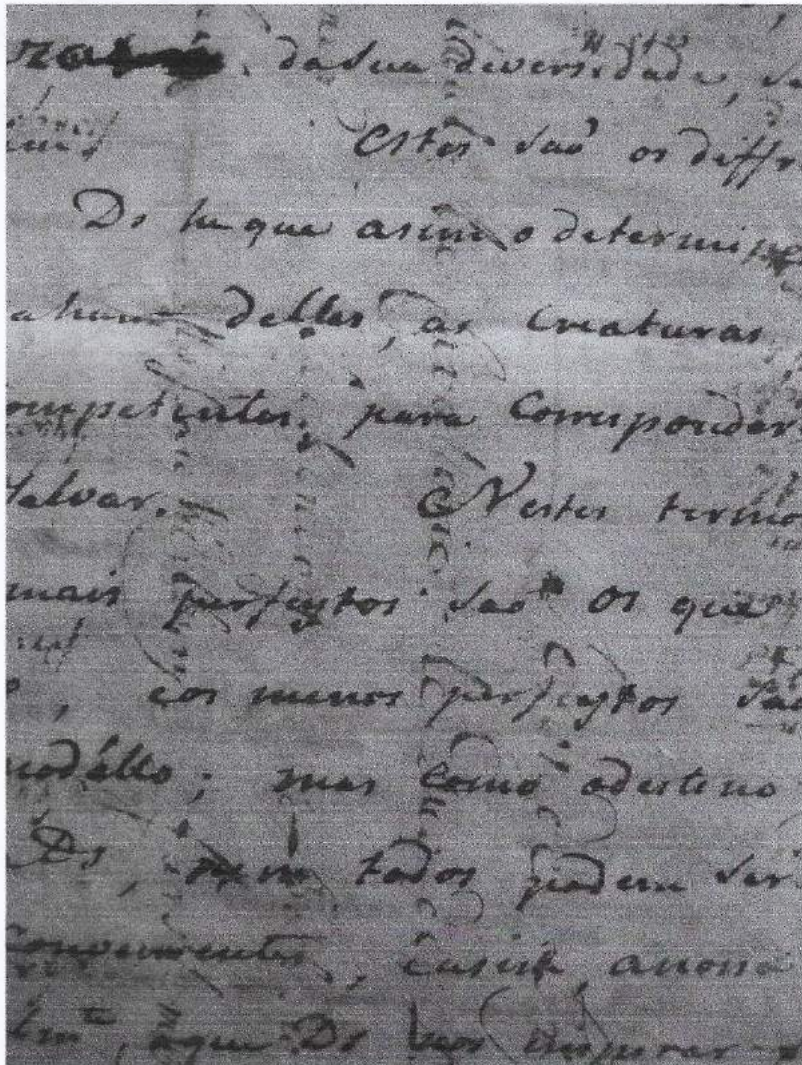 da sua diversidade, se
Estes saõ os diffr
Ds he que asim o determina
a hum delles, as Creaturas
ompetentes, para Corresponder
salvar. Nestes termo
mais perfeytos saõ os que
, e os menos perfeytos saõ
modéllo; mas como o destino
Ds, nem todos podem ser
Convenientes, e asim, a nossa
aque Ds nos